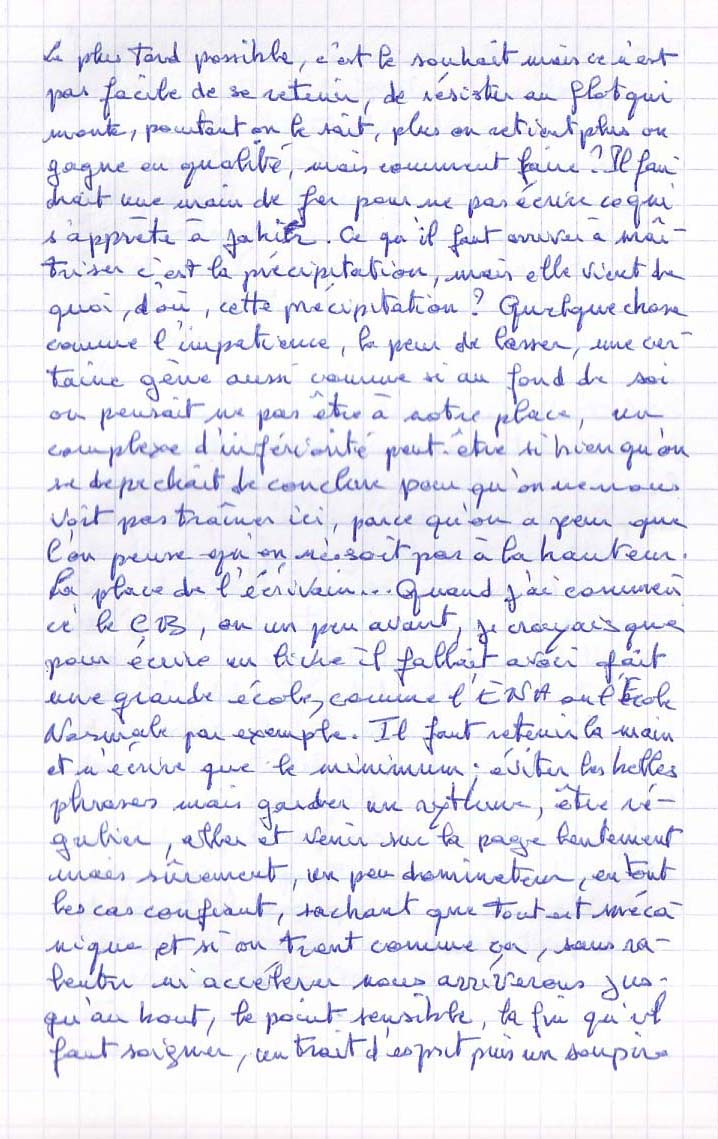 Le plus tard possible, c'est le souhait mais ce n'est
pas facile de se retenir, de résister au flot qui
monte, pourtant on le sait, plus on retient plus on
gagne en qualité, mais comment faire? Il fau
drait une main de fer pour ne pas écrire ce qui
s'apprête à jaillir. Ce qu'il faut arriver à maî-
triser c'est la précipitation, mais elle vient de
quoi, d'où, cette précipitation? Quelque chose
comme l'impatience, la peur de lasser, une cer-
taine gêne aussi comme si au fond de soi
on pensait ne pas être à notre place, un
complexe d'infériorité peut-être si bien qu'on
se depêchait de conclure pour qu'on ne nous
voit pas traîner ici, parce qu'on a peur que
l'on pense qu'on ne soit pas à la hauteur.
La place de l'écrivain... Quand j'ai commen
cé le CB, ou un peu avant, je croyais que
pour écrire un livre il fallait avoir fait
une grande école, comme l'ENA ou l'École
Normale par exemple. Il faut retenir la main
et n'écrire que le minimum; éviter les belles
phrases mais garder un rythme, être ré-
gulier, aller et venir sur la page lentement
mais sûrement, un peu dominateur, en tout
les cas confiant, sachant que tout est méca
nique et si on tient comme ça, sans ra-
lentir ni accélérer nous arriverons jus-
qu'au bout, le point sensible, la fin qu'il
faut soigner, un trait d'esprit puis un soupir.